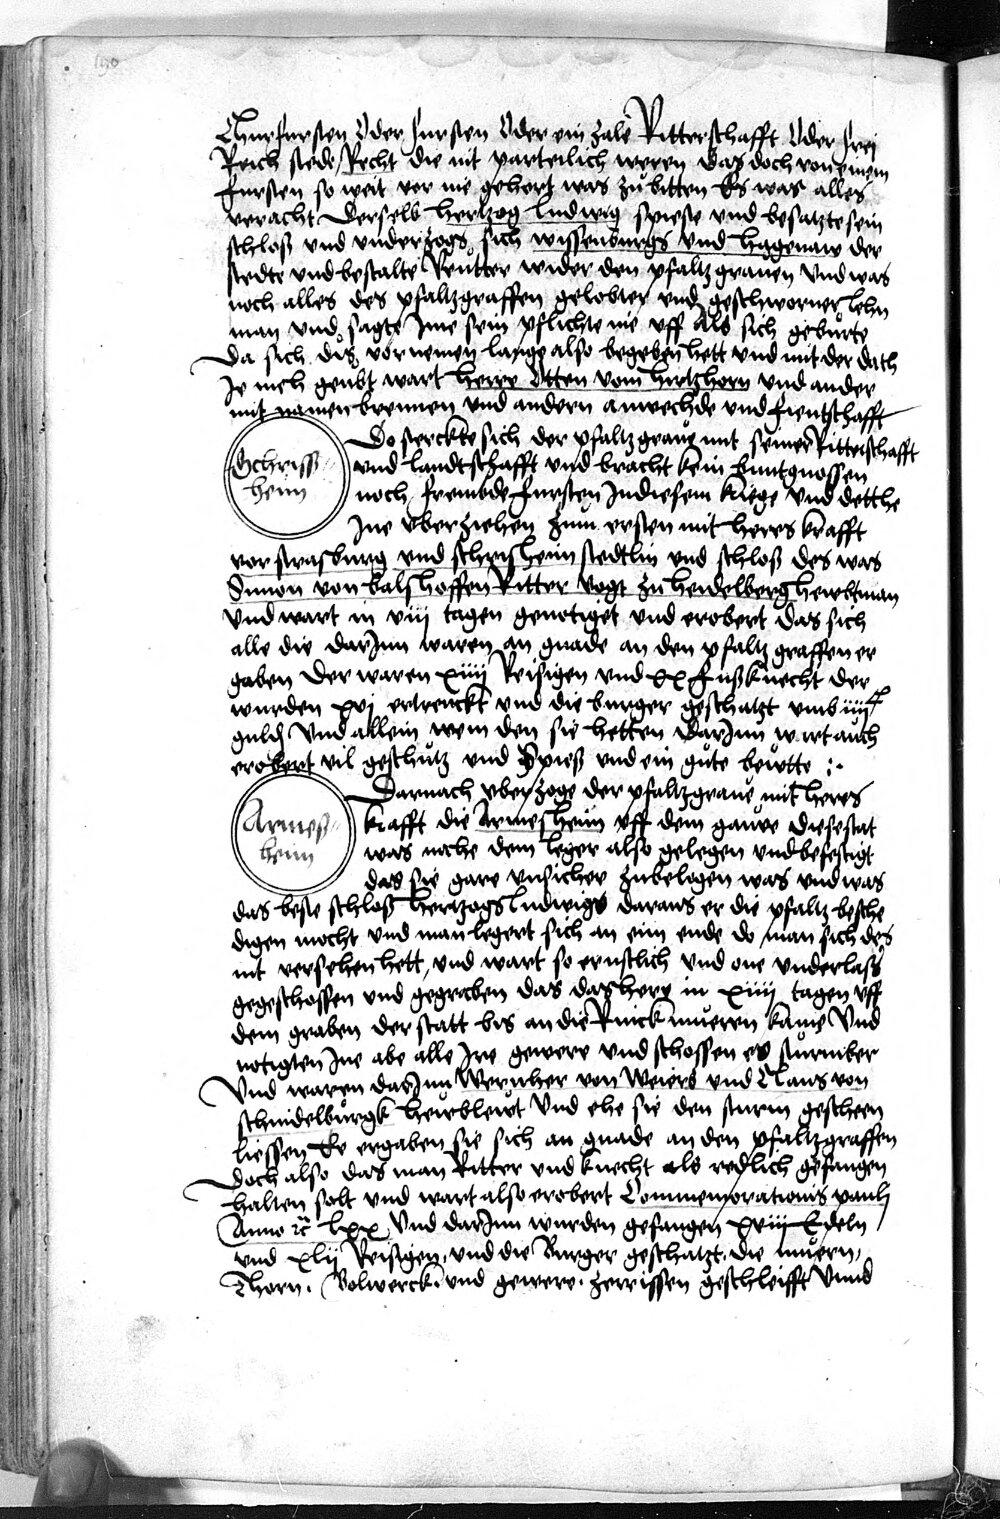 190
Churfursten Oder fursten Oder ein zale Ritterschafft Oder frei
Reich stede Recht die nit parteilich weren das doch von einem
fursten so weit vor nie gehort was zu bitten Es was alles
veracht Derselb hertzog Ludwig speiste vnd besatzte sein
schloß vnd vnderzogs sich wissenburgs vnd hagenaw der
stedte vnd bestalte Reutter wider den pfaltzgrauen Vnd was
noch alles des pfaltzgraffen gelobter vnd geschworner lehn
man vnd sagte Ime sein pflichte nie vff Als sich geburte
Da sich diß vornemen lange also begeben hett vnd mit der dath
Je meh geubt wart herre Otten vom hirtzhorn vnd ander
mit namen brennen vnd andern anwechde vnd fientschafft
Do sterckte sich der pfaltzgraue mit seiner Ritterschafft
vnd landtschafft vnd bracht kein buntgnossen
noch frembde fursten In diesem kriege Vnd detthe
Ine vberziehen zum ersten mit heres krafft
Schrisß
heim
vor strasburg vnd schrisheim stedtlin vnd schloß des was
Simon von balshoffen Ritter vogt zu heidelberg hewbtman
Vnd wart in viij tagen genotiget vnd erobert das sich
alle die darJnn waren an gnade an den pfaltzgraffen er
gaben Der waren xiiij Reisigen vnd xx fußknecht der
wurden xvj ertrenckt vnd die burger geschatzt vmb iiij
guld Vnd allein wem den sie hetten DarJnn wart auch
erobert vil geschutz vnd Spieß vnd ein gute beutte :-
Darnach vberzoge der pfaltzgraue mit heres
krafft die Armesheim vff dem gauwe die stat
was nahe dem leger also gelegen vnd befestigt
das sie gare vnsicher zubelegen was vnd was
Armeß
heim
das beste schloß hertzogs Ludwigs daraus er die pfaltz besche
digen mocht vnd man legert sich an eim ende do man sich des
nit versehen hett, vnd wart so ernstlich vnd one vnderlaß
gegeschossen vnd gegraben das das here in xiiij tagen vff
dem graben der statt bis an die Rinckmuern kame Vnd
notigten Ine abe alle Ire gewere vnd schossen es sturmber
Vnd waren darJnn Wernher von Weiers vnd Claus von
schmidelburgk hewbtlewt Vnd ehe sie den sturm gescheen
liessen Do ergaben sie sich an gnade an den pfaltzgraffen
Doch also das man Ritter vnd knecht als redlich gefangen
halten solt vnd wart also erobert Commemorationis pauli
Anno ꝛc lxx Vnd darJnn wurden gefangen xviij Edeln
vnd xlij Reisigen vnd die Burger geschatzt die muern,
Thorn. Bolwerck vnd gewere zerrissen geschleifft Vnnd